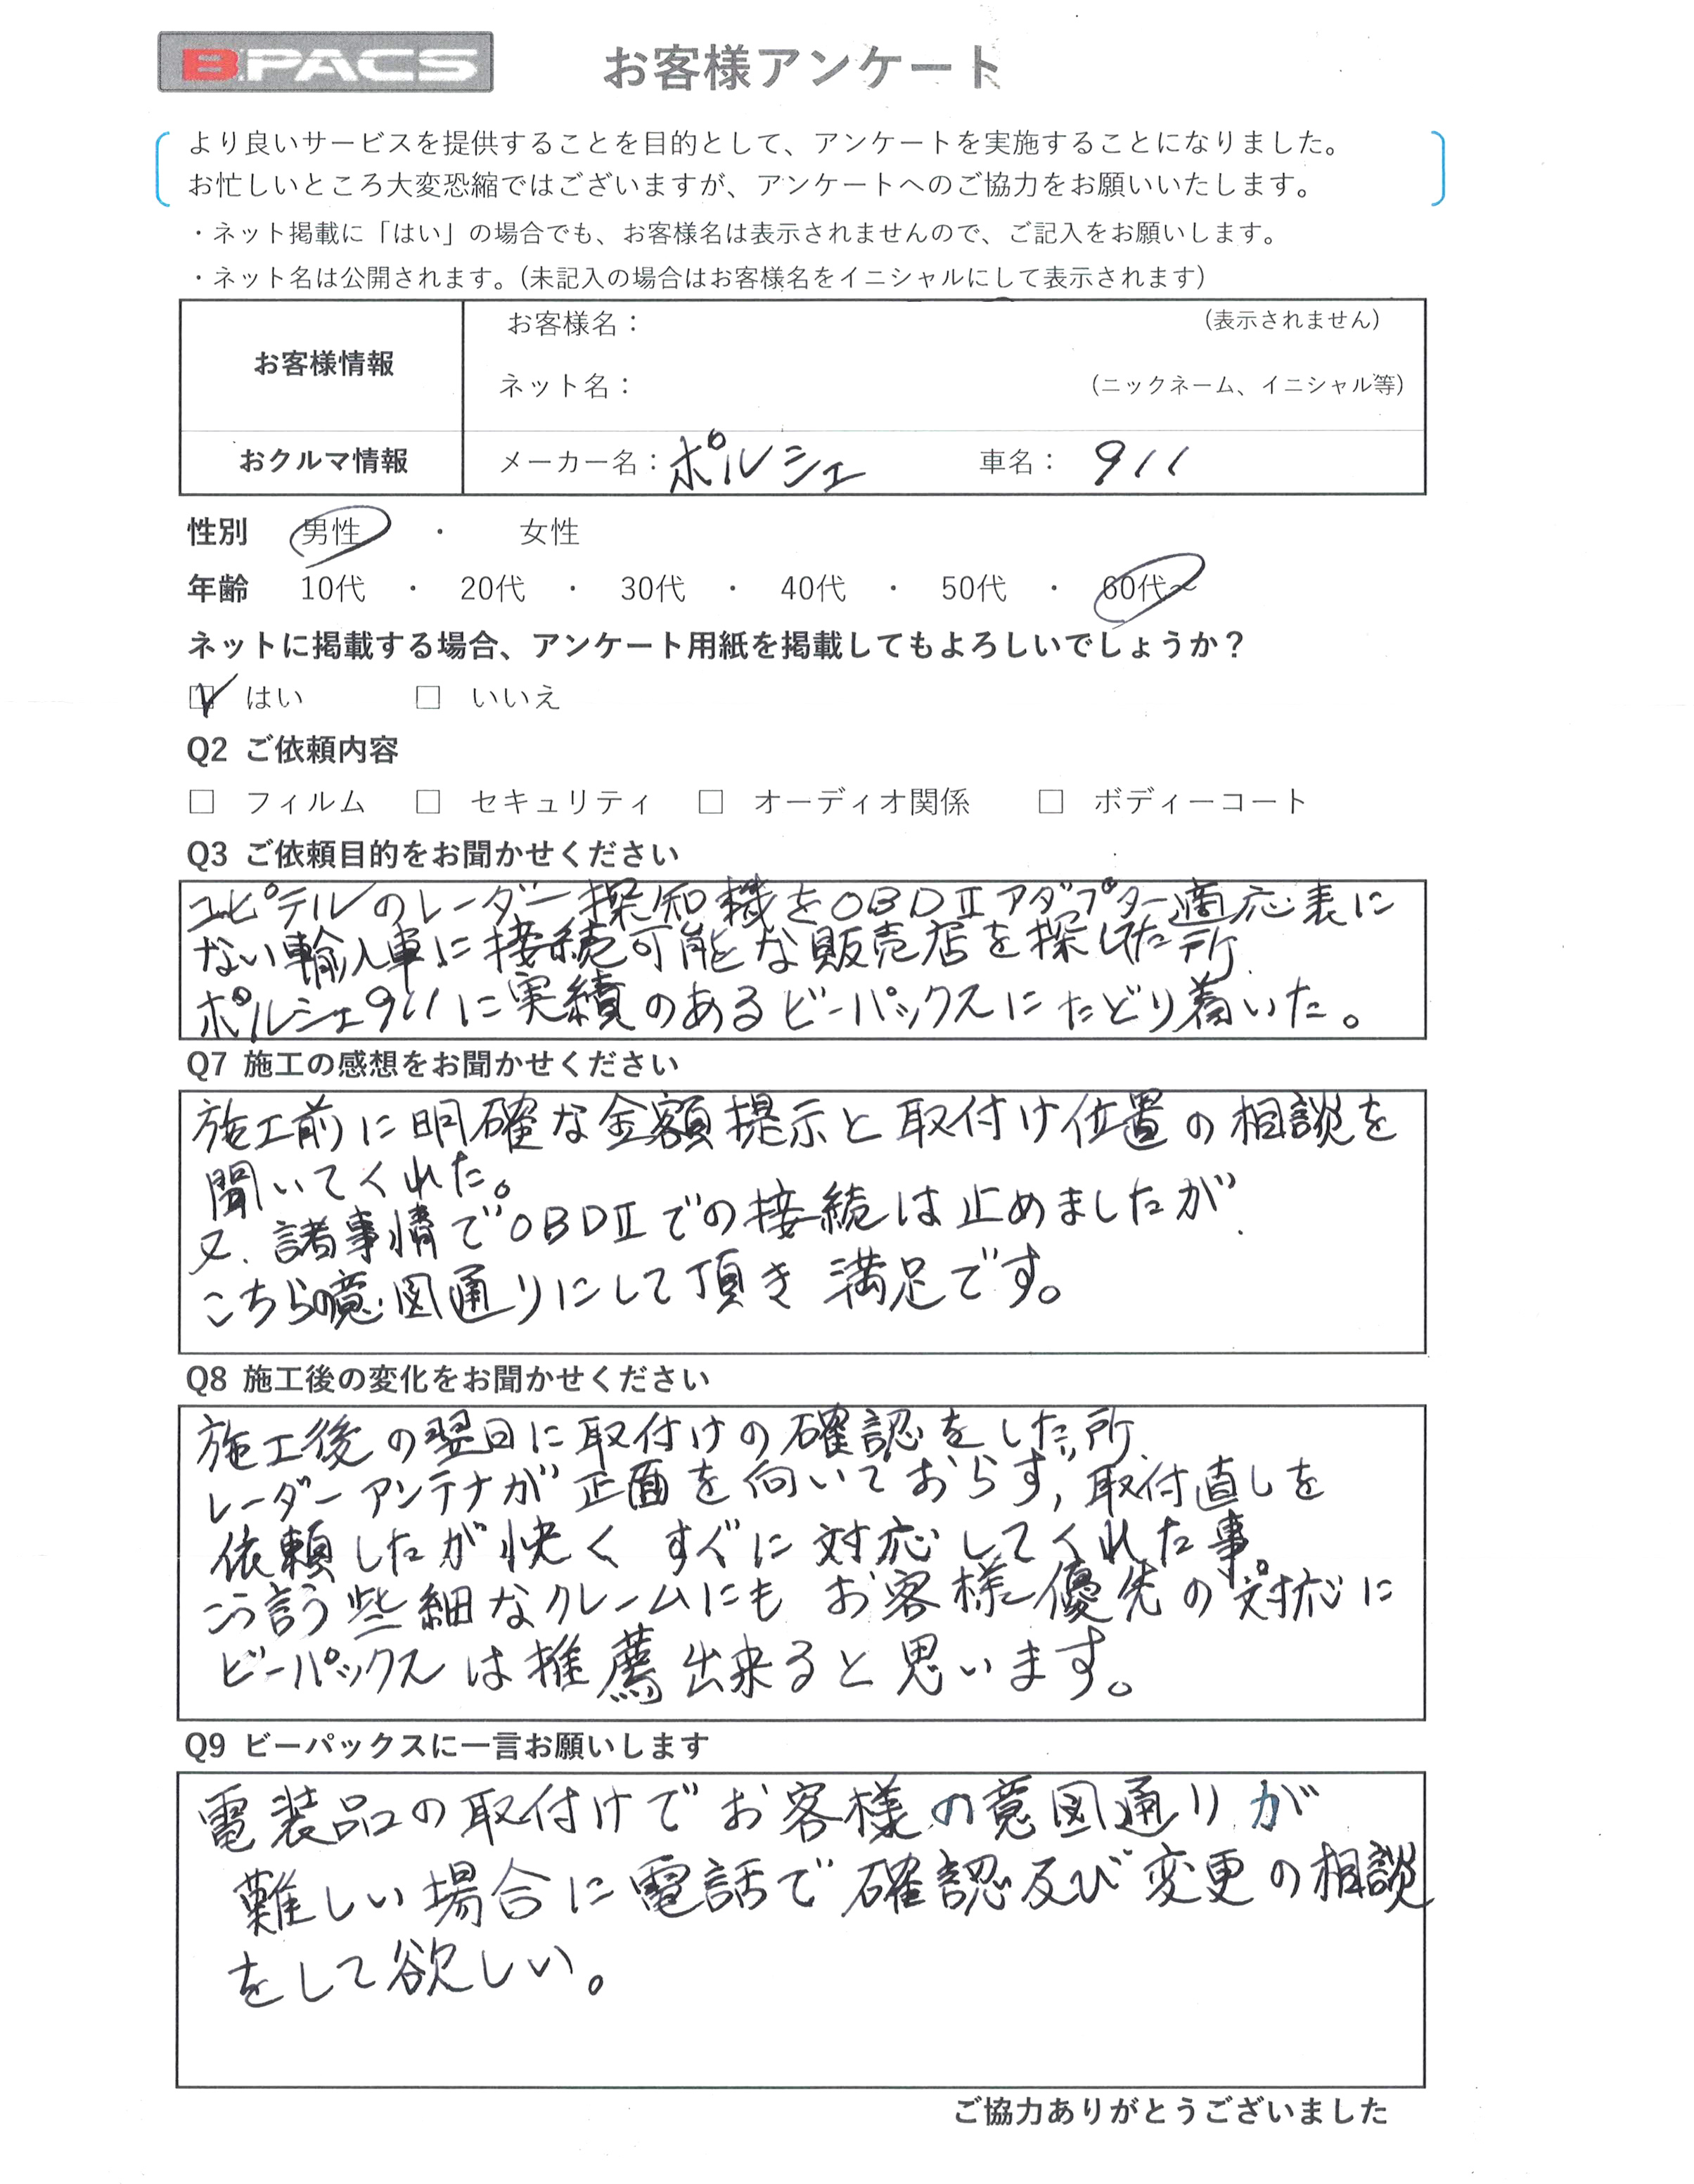 B.PACS お客様アンケート
より良いサービスを提供することを目的として、アンケートを実施することになりました。
お忙しいところ大変恐縮ではございますが、アンケートへのご協力をお願いいたします。
・ネット掲載に「はい」の場合でも、お客様名は表示されませんので、ご記入をお願いします。
・ネット名は公開されます。(未記入の場合はお客様名をイニシャルにして表示されます)
お客様情報
お客様名： (表示されません)
ネット名： (ニックネーム、イニシャル等)
おクルマ情報 メーカー名：ポルシェ 車名： 911
性別 男性 ・ 女性
年齢 10代 ・ 20代 ・ 30代 ・ 40代 ・ 50代 ・ 60代~
ネットに掲載する場合、アンケート用紙を掲載してもよろしいでしょうか？
☑ はい □ いいえ
Q2 ご依頼内容
□ フィルム □ セキュリティ □ オーディオ関係 □ ボディーコート
Q3 ご依頼目的をお聞かせください
ユピテルのレーダー探知機をOBDⅡアダプター適応表に
ない輸入車に接続可能な販売店を探した所、
ポルシェ911に実績のあるビーパックスにたどり着いた。
Q7 施工の感想をお聞かせください
施工前に明確な金額提示と取付け位置の相談を
聞いてくれた。
又、諸事情でOBDⅡでの接続は止めましたが、
こちらの意図通りにして頂き満足です。
Q8 施工後の変化をお聞かせください
施工後の翌日に取付けの確認をした所、
レーダーアンテナが正面を向いておらず、取付直しを
依頼したが快くすぐに対応してくれた事、
こう言う些細なクレームにもお客様優先の対応に
ビーパックスは推薦出来ると思います。
Q9 ビーパックスに一言お願いします
電装品の取付けでお客様の意図通りが
難しい場合に電話で確認及び変更の相談
をして欲しい。
ご協力ありがとうございました